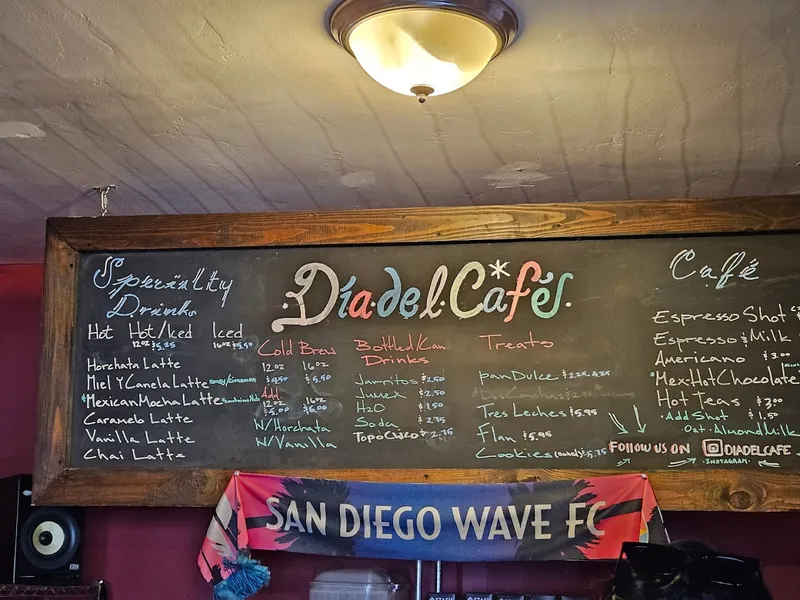 Specialty
Drinks
Hot Hot/Iced Iced
12oz $5.25 16oz $5.50
Horchata Latte
Miel Y Canela Latte honey/cinnamon
*Mexican Mocha Latte
Caramelo Latte
Vanilla Latte
Chai Latte
Dia·del·Cafés.
Cold Brew
12oz 16oz
$4.50 $5.50
Add
12oz 16oz
$5.00 $6.00
W/Horchata
W/Vanilla
Bottled/Can
Drinks
Jarritos $2.50
Jumex $2.50
H2O $1.50
Soda $2.75
Topo Chico $2.75
Treats
Pan Dulce
Dos Conchas
Tres Leches $5.95
Flan $5.95
Cookies
Café
Espresso Shot
Espresso & Milk
Americano $3.00
*Mex-Hot Chocolate
Hot Teas $3.00
·Add Shot $1.50
Oat·Almond Milk
Follow us on DIADELCAFE
·INSTAGRAM·
SAN DIEGO WAVE FC